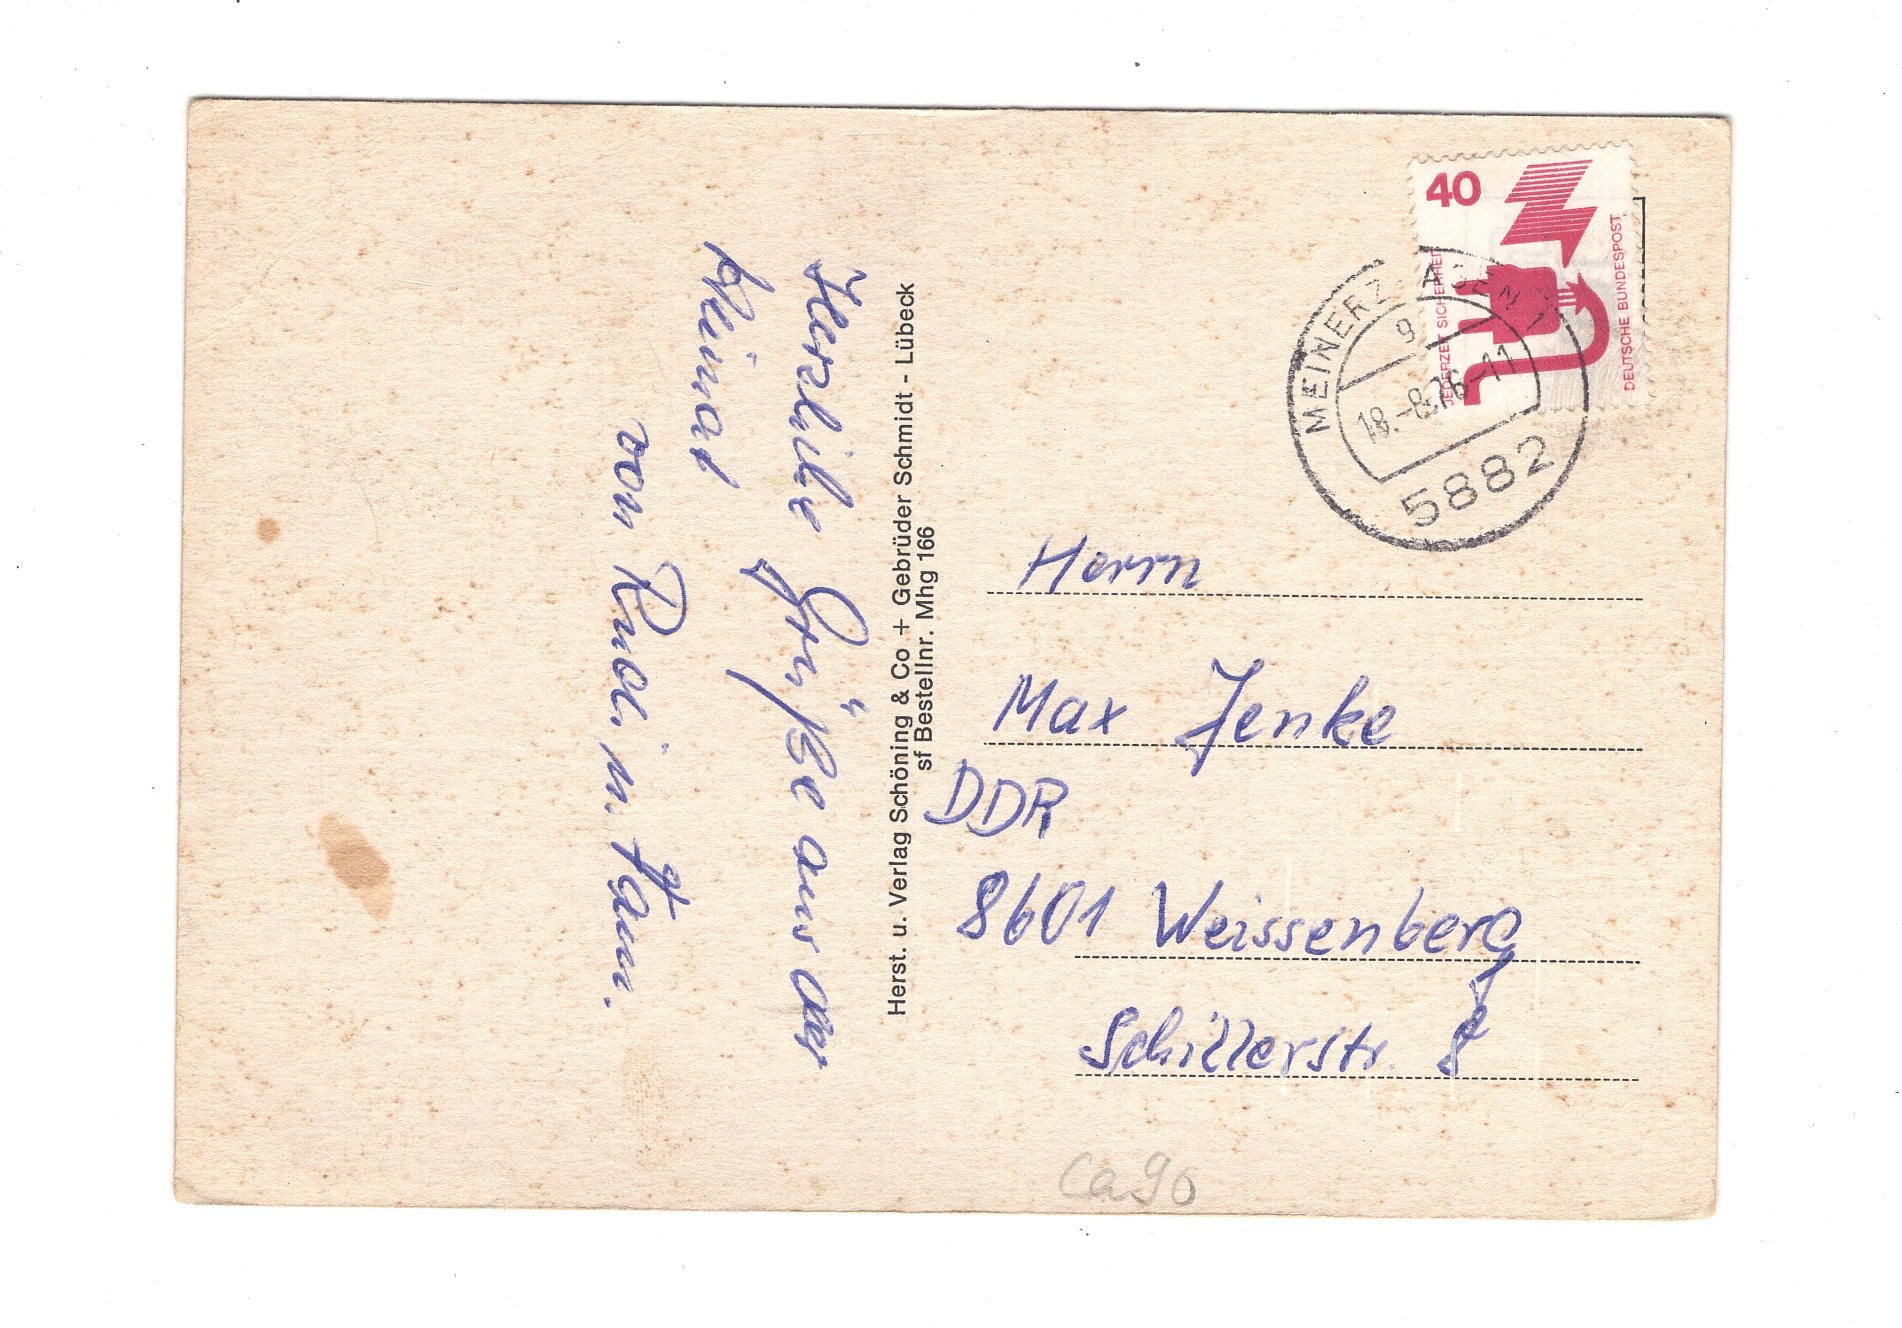 Herzliche Grüße aus der
Heimat
von Rudi u. Fam.
Herst. u. Verlag Schöning & Co + Gebrüder Schmidt - Lübeck
sf Bestellnr. Mhg 166
40
JEDERZEIT SICHERHEIT
DEUTSCHE BUNDESPOST
MEINERZHAGEN 1
g
18.-8.76-11
5882
Herrn
Max Jenke
DDR
8601 Weissenberg
Schillerstr. 8
Ca90